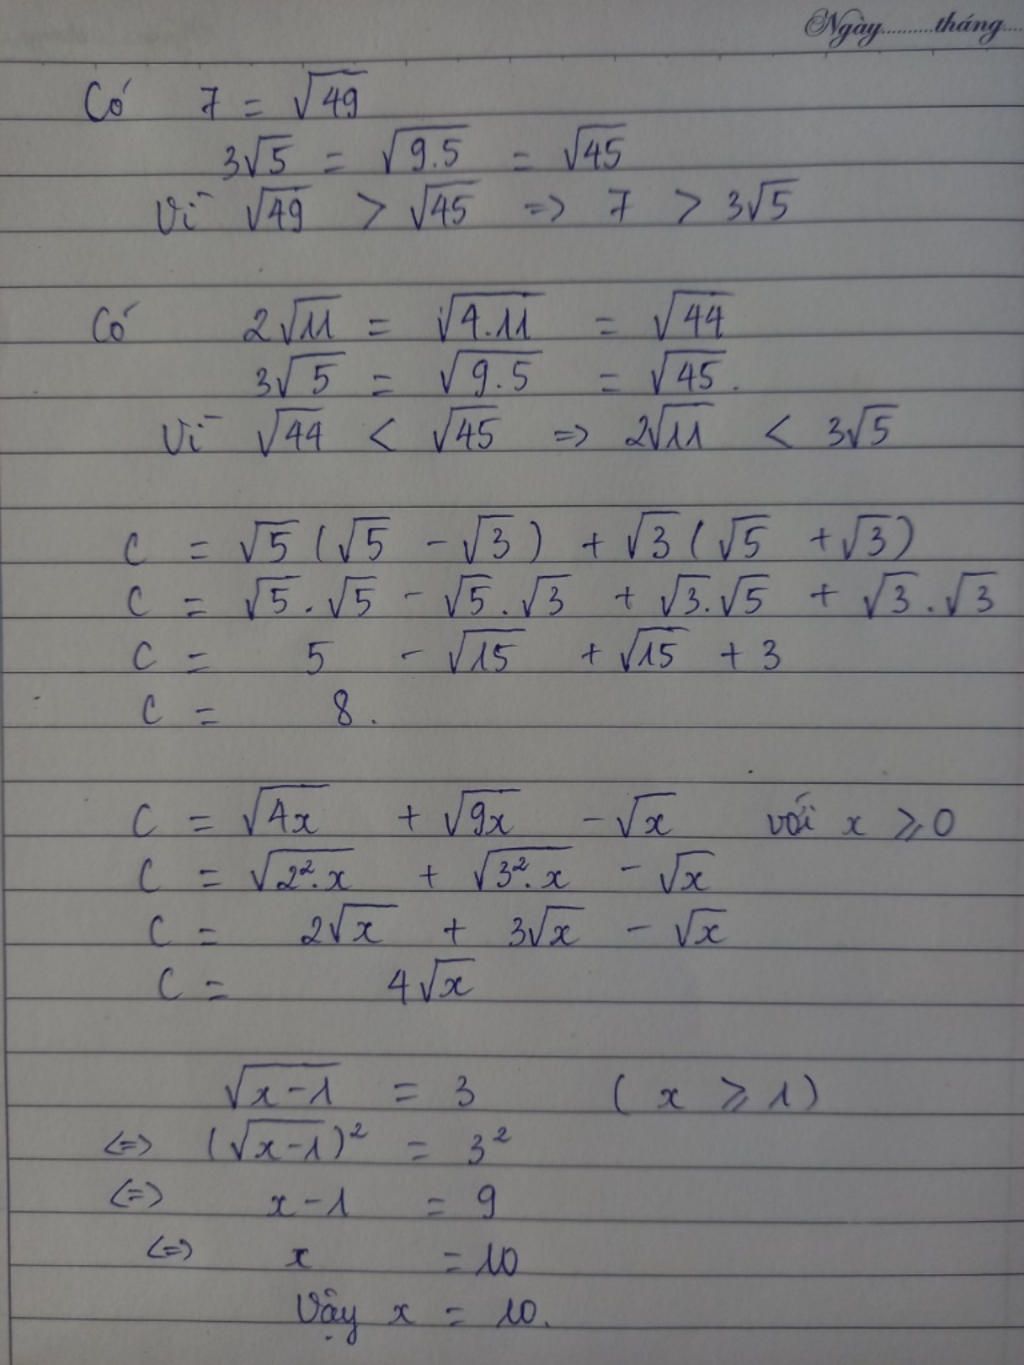 Ngày..........tháng....
Có 7 = √49
3√5 = √9.5 = √45
Vì √49 > √45 => 7 > 3√5
Có 2√11 = √4.11 = √44
3√5 = √9.5 = √45.
Vì √44 < √45 => 2√11 < 3√5
C = √5 (√5 - √3) + √3 (√5 + √3)
C = √5.√5 - √5.√3 + √3.√5 + √3.√3
C = 5 - √15 + √15 + 3
C = 8.
C = √4x + √9x - √x với x ⩾ 0
C = √2².x + √3².x - √x
C = 2√x + 3√x - √x
C = 4√x
√x-1 = 3 (x ⩾ 1)
<=> (√x-1)² = 3²
<=> x-1 = 9
<=> x = 10
Vậy x = 10.